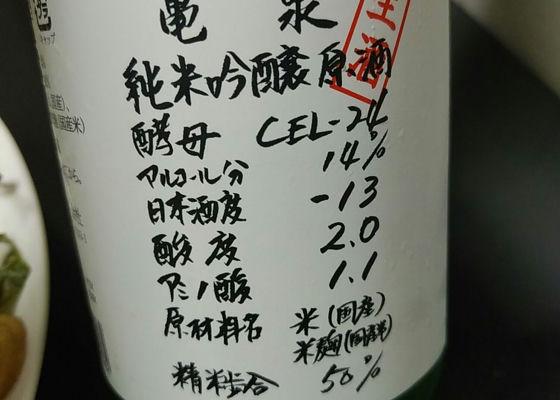 亀泉
生酒
純米吟醸原酒
酵母 CEL-24
アルコール分 14%
日本酒度 -13
酸度 2.0
アミノ酸 1.1
原材料名 米(国産)
米麹(国産米)
精米歩合 50%